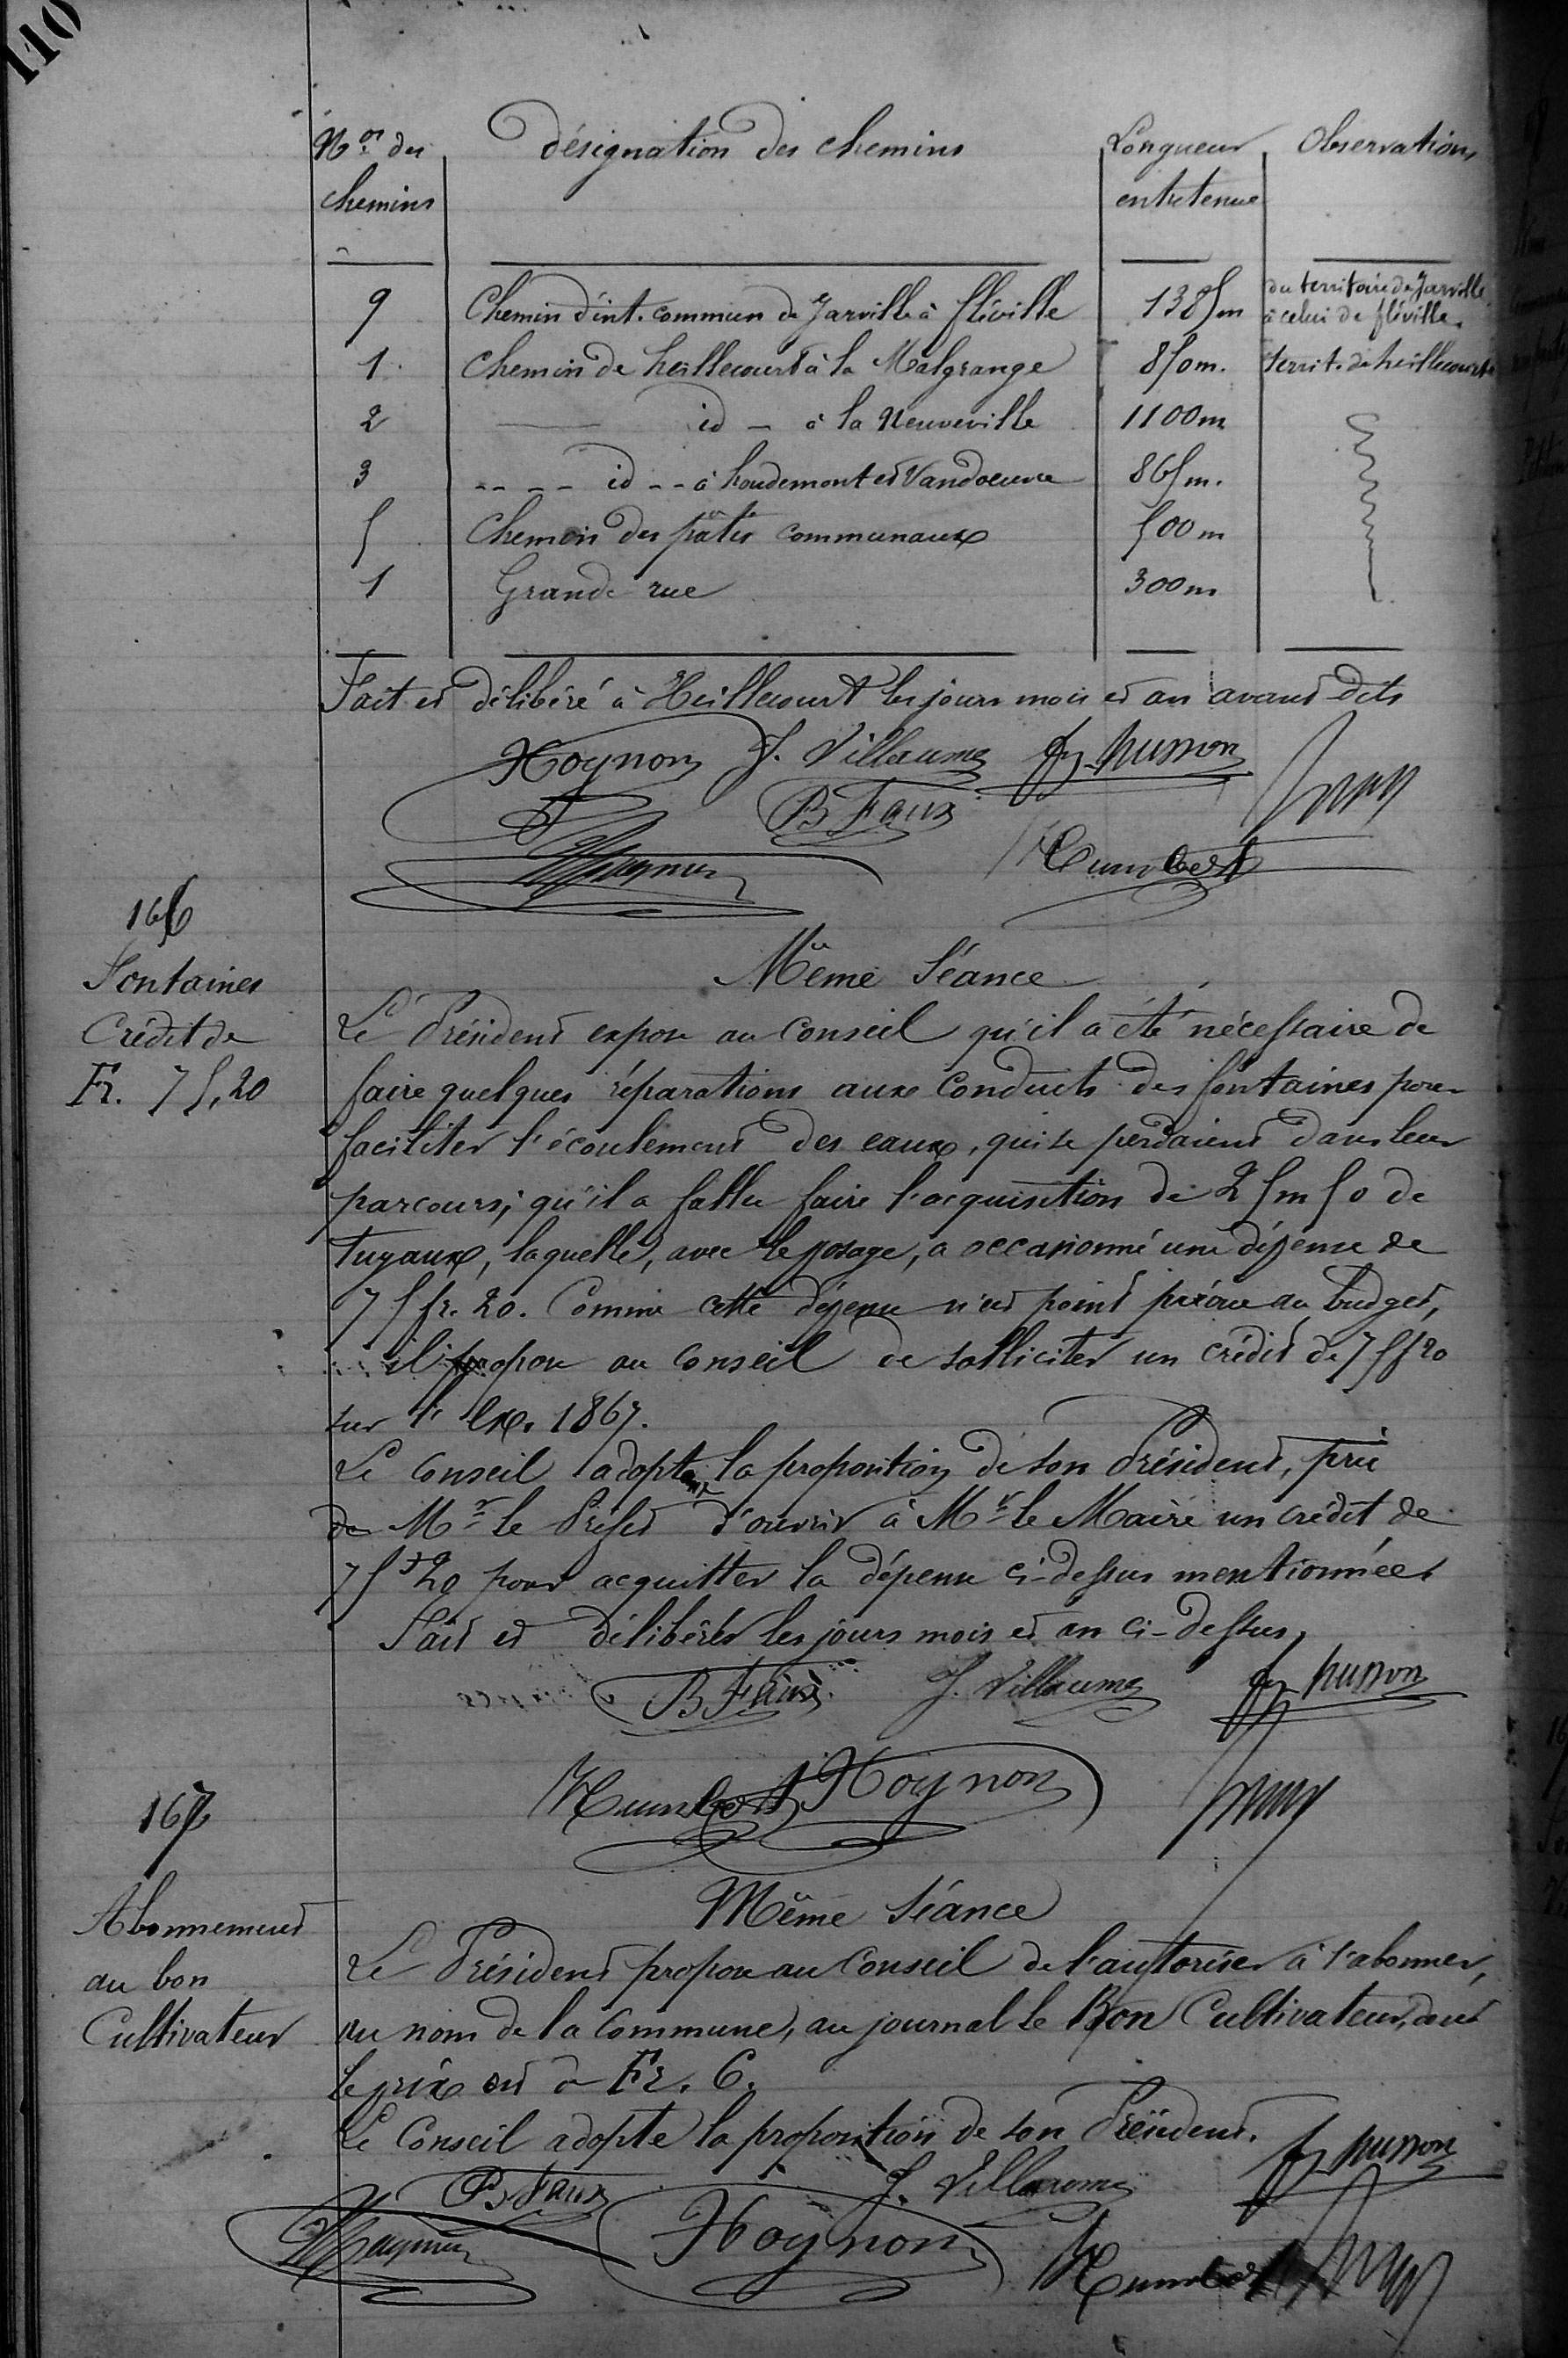 110
Nos des chemins | désignation des chemins | Longueur entretenue | Observations
9 | Chemin d'int. commun de Jarville à fléville | 1385m | du territoire de Jarville à celui de fléville.
1 | Chemin de heillecourt à la Malgrange | 850m. | territ. de heillecourt
2 | id - à la Neuveville | 1100m
3 | id - - à houdemont et Vandoeuvre | 865m.
5 | Chemin des pâtis communaux | 500m
1 | Grande rue | 300m
Fait et délibéré à Heillecourt les jours mois et an avant dits
Hoynon J. Villaume fs husson
B Faux
Humbert
166
Fontaines
Crédit de
Fr. 75,20
Même Séance
Le Président expose au Conseil qu'il a été nécessaire de
faire quelques réparations aux Conduits des fontaines pour
faciliter l'écoulement des eaux, qui se perdaient dans leur
parcours; qu'il a fallu faire l'acquisition de 25m50 de
tuyaux, laquelle, avec le posage, a occasionné une dépense de
75 fr. 20. Comme cette dépense n'est point prévue au budget,
il propose au Conseil de solliciter un crédit de 75f20
sur l'ex. 1867.
Le Conseil adoptant la proposition de son Président, prie
de Mr le Préfet d'ouvrir à Mr le Maire un crédit de
75f20 pour acquitter la dépense ci-dessus mentionnée.
Fait et délibéré les jours mois et an ci-dessus,
B Faux J. Villaume fs husson
Humbert Hoynon
167
Abonnement
au bon
Cultivateur
Même Séance
Le Président propose au Conseil de l'autoriser à s'abonner,
au nom de la Commune, au journal le Bon Cultivateur, dont
le prix est de Fr. 6.
Le Conseil adopte la proposition de son Président.
B Faux J. Villaume fs husson
Hoynon Humbert